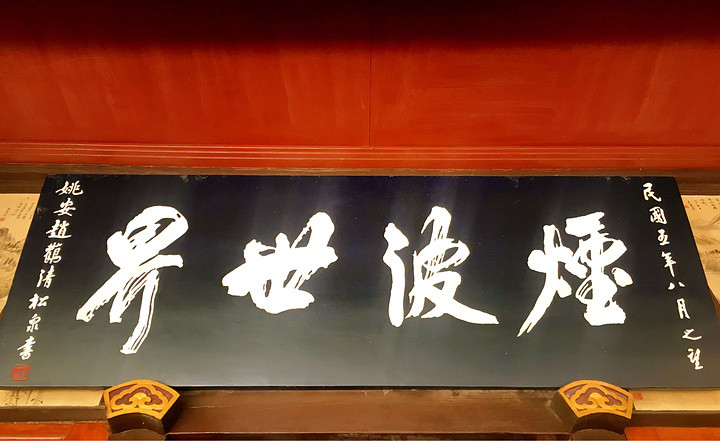 民國五年八月之望
煙波世界
姚安趙鶴清松泉書